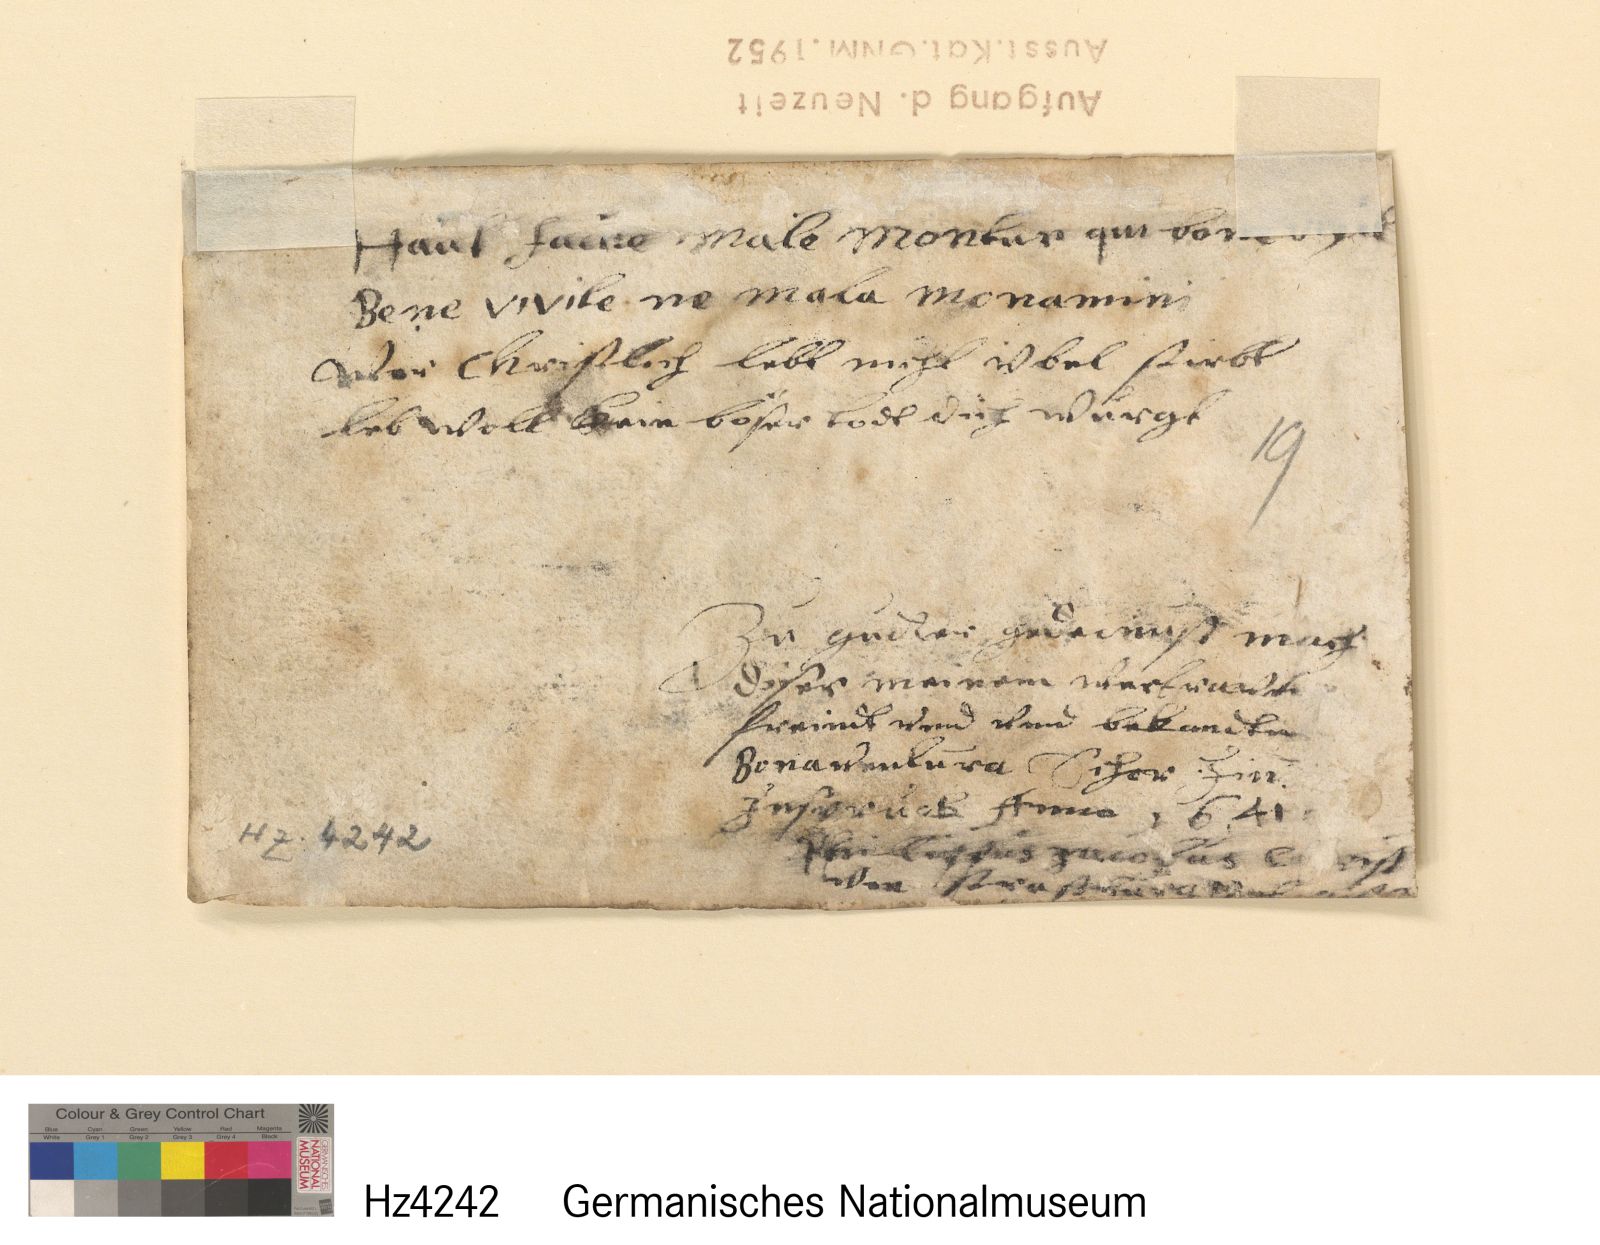 Ausst.Kat.GNM.1952
Aufgang d. Neuzeit
Haut facile male Moritur qui bene
Bene vivite ne mala moriamini
Wer Christlich lebt nicht übel stirbt
leb woll kein böser todt dich würgt
19
Zu gueter gedechnuß mach
diser meinem vertrauth
freindt vnd vnd bekandten
Bonaventura Scher Zin.
Insprugk Anno 1641
Philippus Jacobus
von Straßburg
Hz. 4242
Colour & Grey Control Chart
Blue Cyan Green Yellow Red Magenta
White Grey 1 Grey 2 Grey 3 Grey 4 Black
GERMANISCHES NATIONAL MUSEUM
Hz4242 Germanisches Nationalmuseum